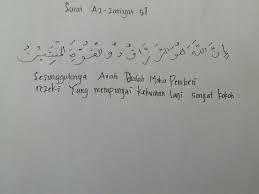 Surat Az-Zariyat 58
إِنَّ اللَّهَ هُوَ الرَّزَّاقُ ذُو الْقُوَّةِ الْمَتِينُ
Sesungguhnya Allah Dialah Maha Pemberi
rezeki Yang mempunyai Kekuatan lagi sangat kokoh